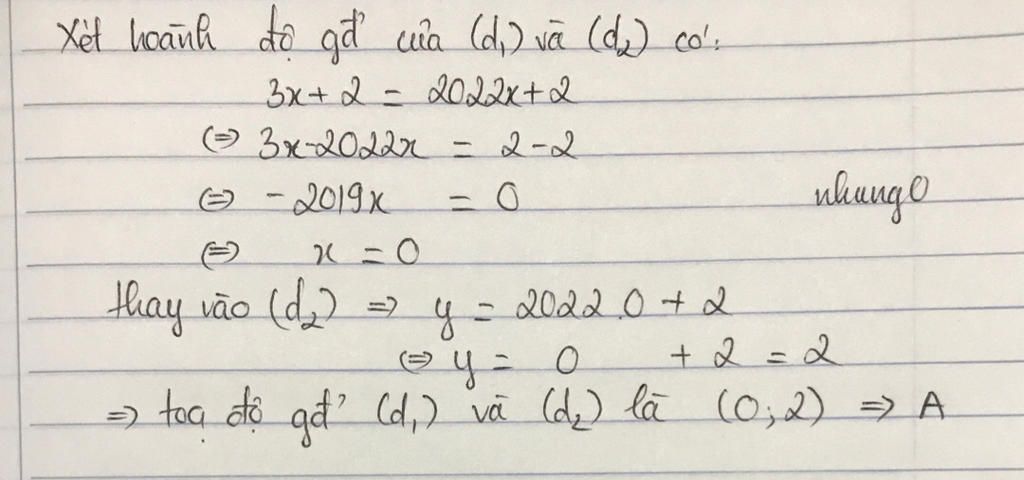 Xét hoành độ gđ' của (d₁) và (d₂) có:
3x + 2 = 2022x + 2
⇔ 3x - 2022x = 2 - 2
⇔ - 2019x = 0
nhung0
⇔ x = 0
thay vào (d₂) ⇒ y = 2022.0 + 2
⇔ y = 0 + 2 = 2
⇒ toạ độ gđ' (d₁) và (d₂) là (0;2) ⇒ A